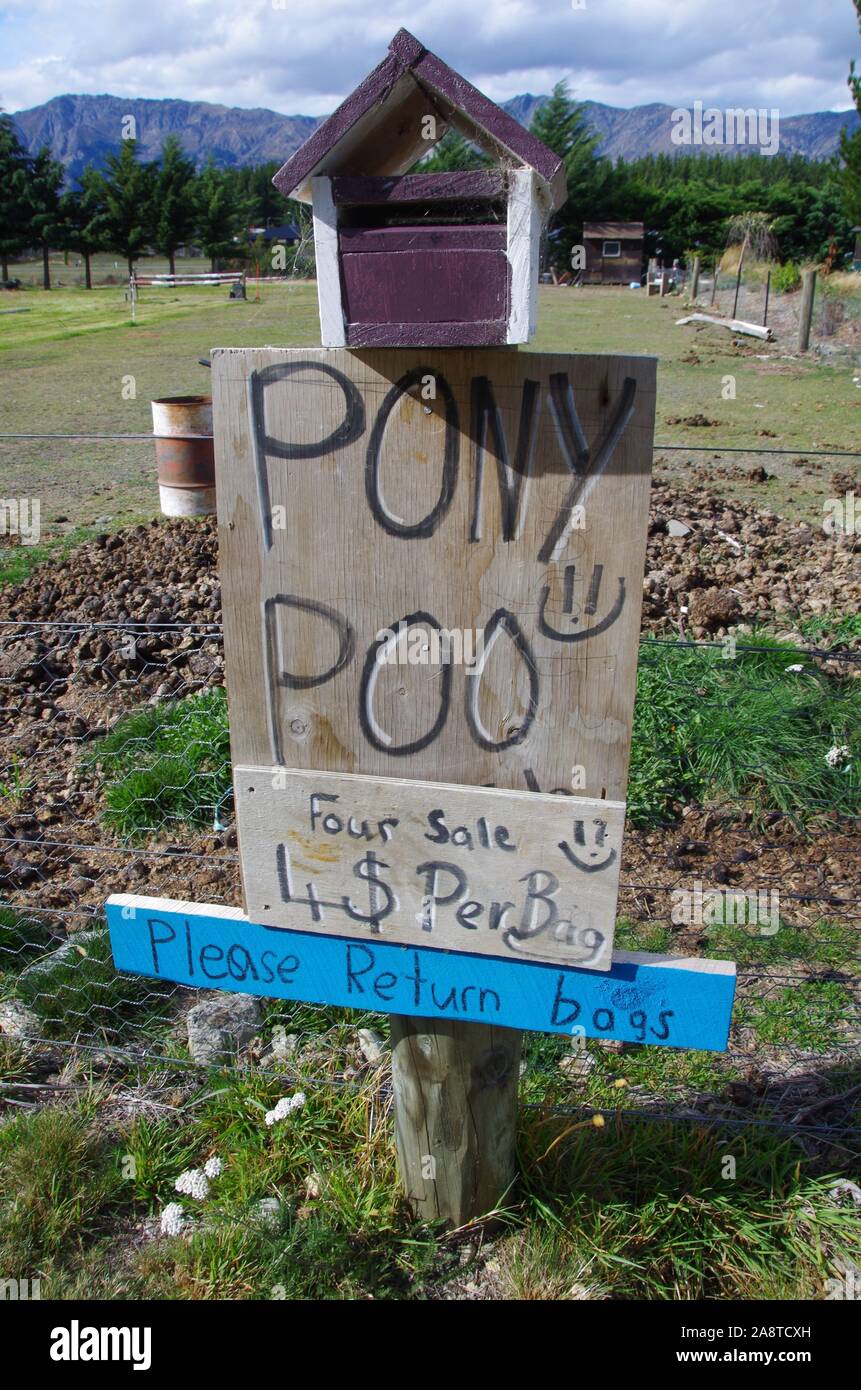 PONY
POO
Four Sale
4$ Per Bag
Please Return bags
a
alamy
a
a
alamy
Image ID: 2A8TCXH
www.alamy.com